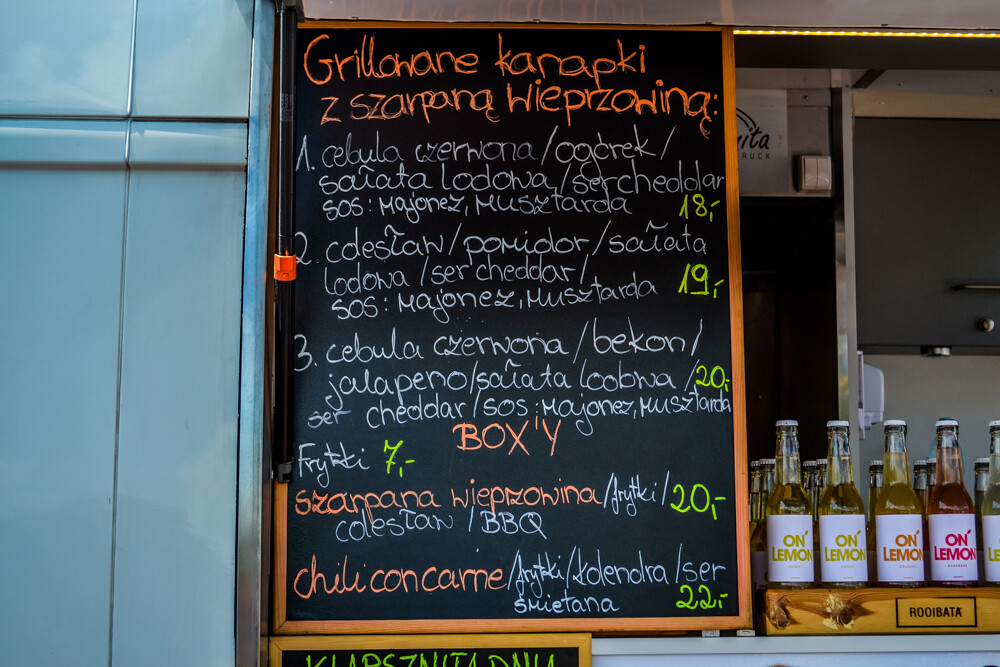 Grillowane kanapki
z szarpaną wieprzowiną:
1. cebula czerwona/ogórek/
sałata lodowa/ser cheddar
sos: majonez, musztarda 18,-
2. colesław/pomidor/sałata
lodowa/ser cheddar/
sos: majonez, musztarda 19,-
3. cebula czerwona/bekon/
jalapeno/sałata loobwa/20,-
ser cheddar/sos: majonez, musztarda
BOX'Y
Frytki 7,-
szarpana wieprzowina/frytki/ 20,-
colesław/BBQ
chili con carne/frytki/kolendra/ser
śmietana 22,-
ON LEMON
ON LEMON
ON LEMON
ON LEMON
ROOIBATA